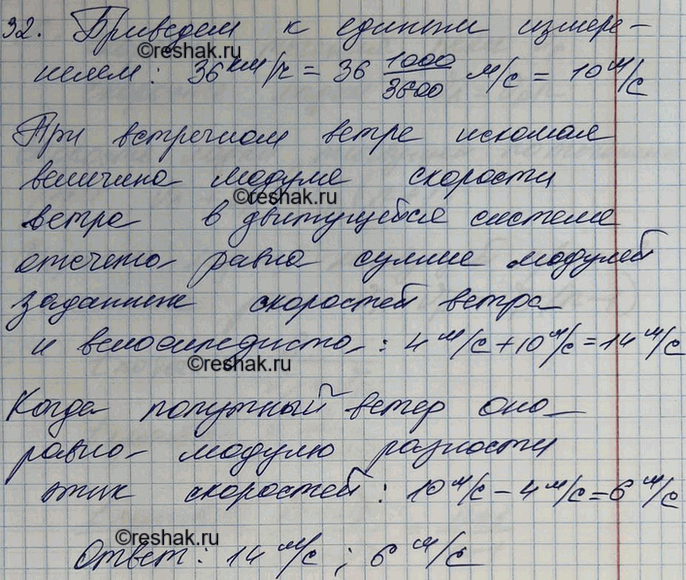 32. Приведем к единым измере-
©reshak.ru
ниям: 36 км/ч = 36 1000/3600 м/с = 10 м/с
При встречном ветре искомая
величина модуля скорости
©reshak.ru
ветра в движущейся системе
отсчета равна сумме модулей
заданных скоростей ветра
и велосипедиста: 4 м/с + 10 м/с = 14 м/с
©reshak.ru
Когда попутный ветер она
равна модулю разности
этих скоростей: 10 м/с - 4 м/с = 6 м/с
©reshak.ru
Ответ: 14 м/с ; 6 м/с